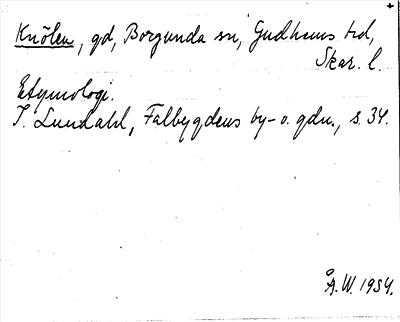 Knölen, gd, Borgunda sn, Gudhems hd,
Skar. l.
Etymologi.
I. Lundahl, Falbygdens by- o. gdn., s. 34.
Å. W. 1954.